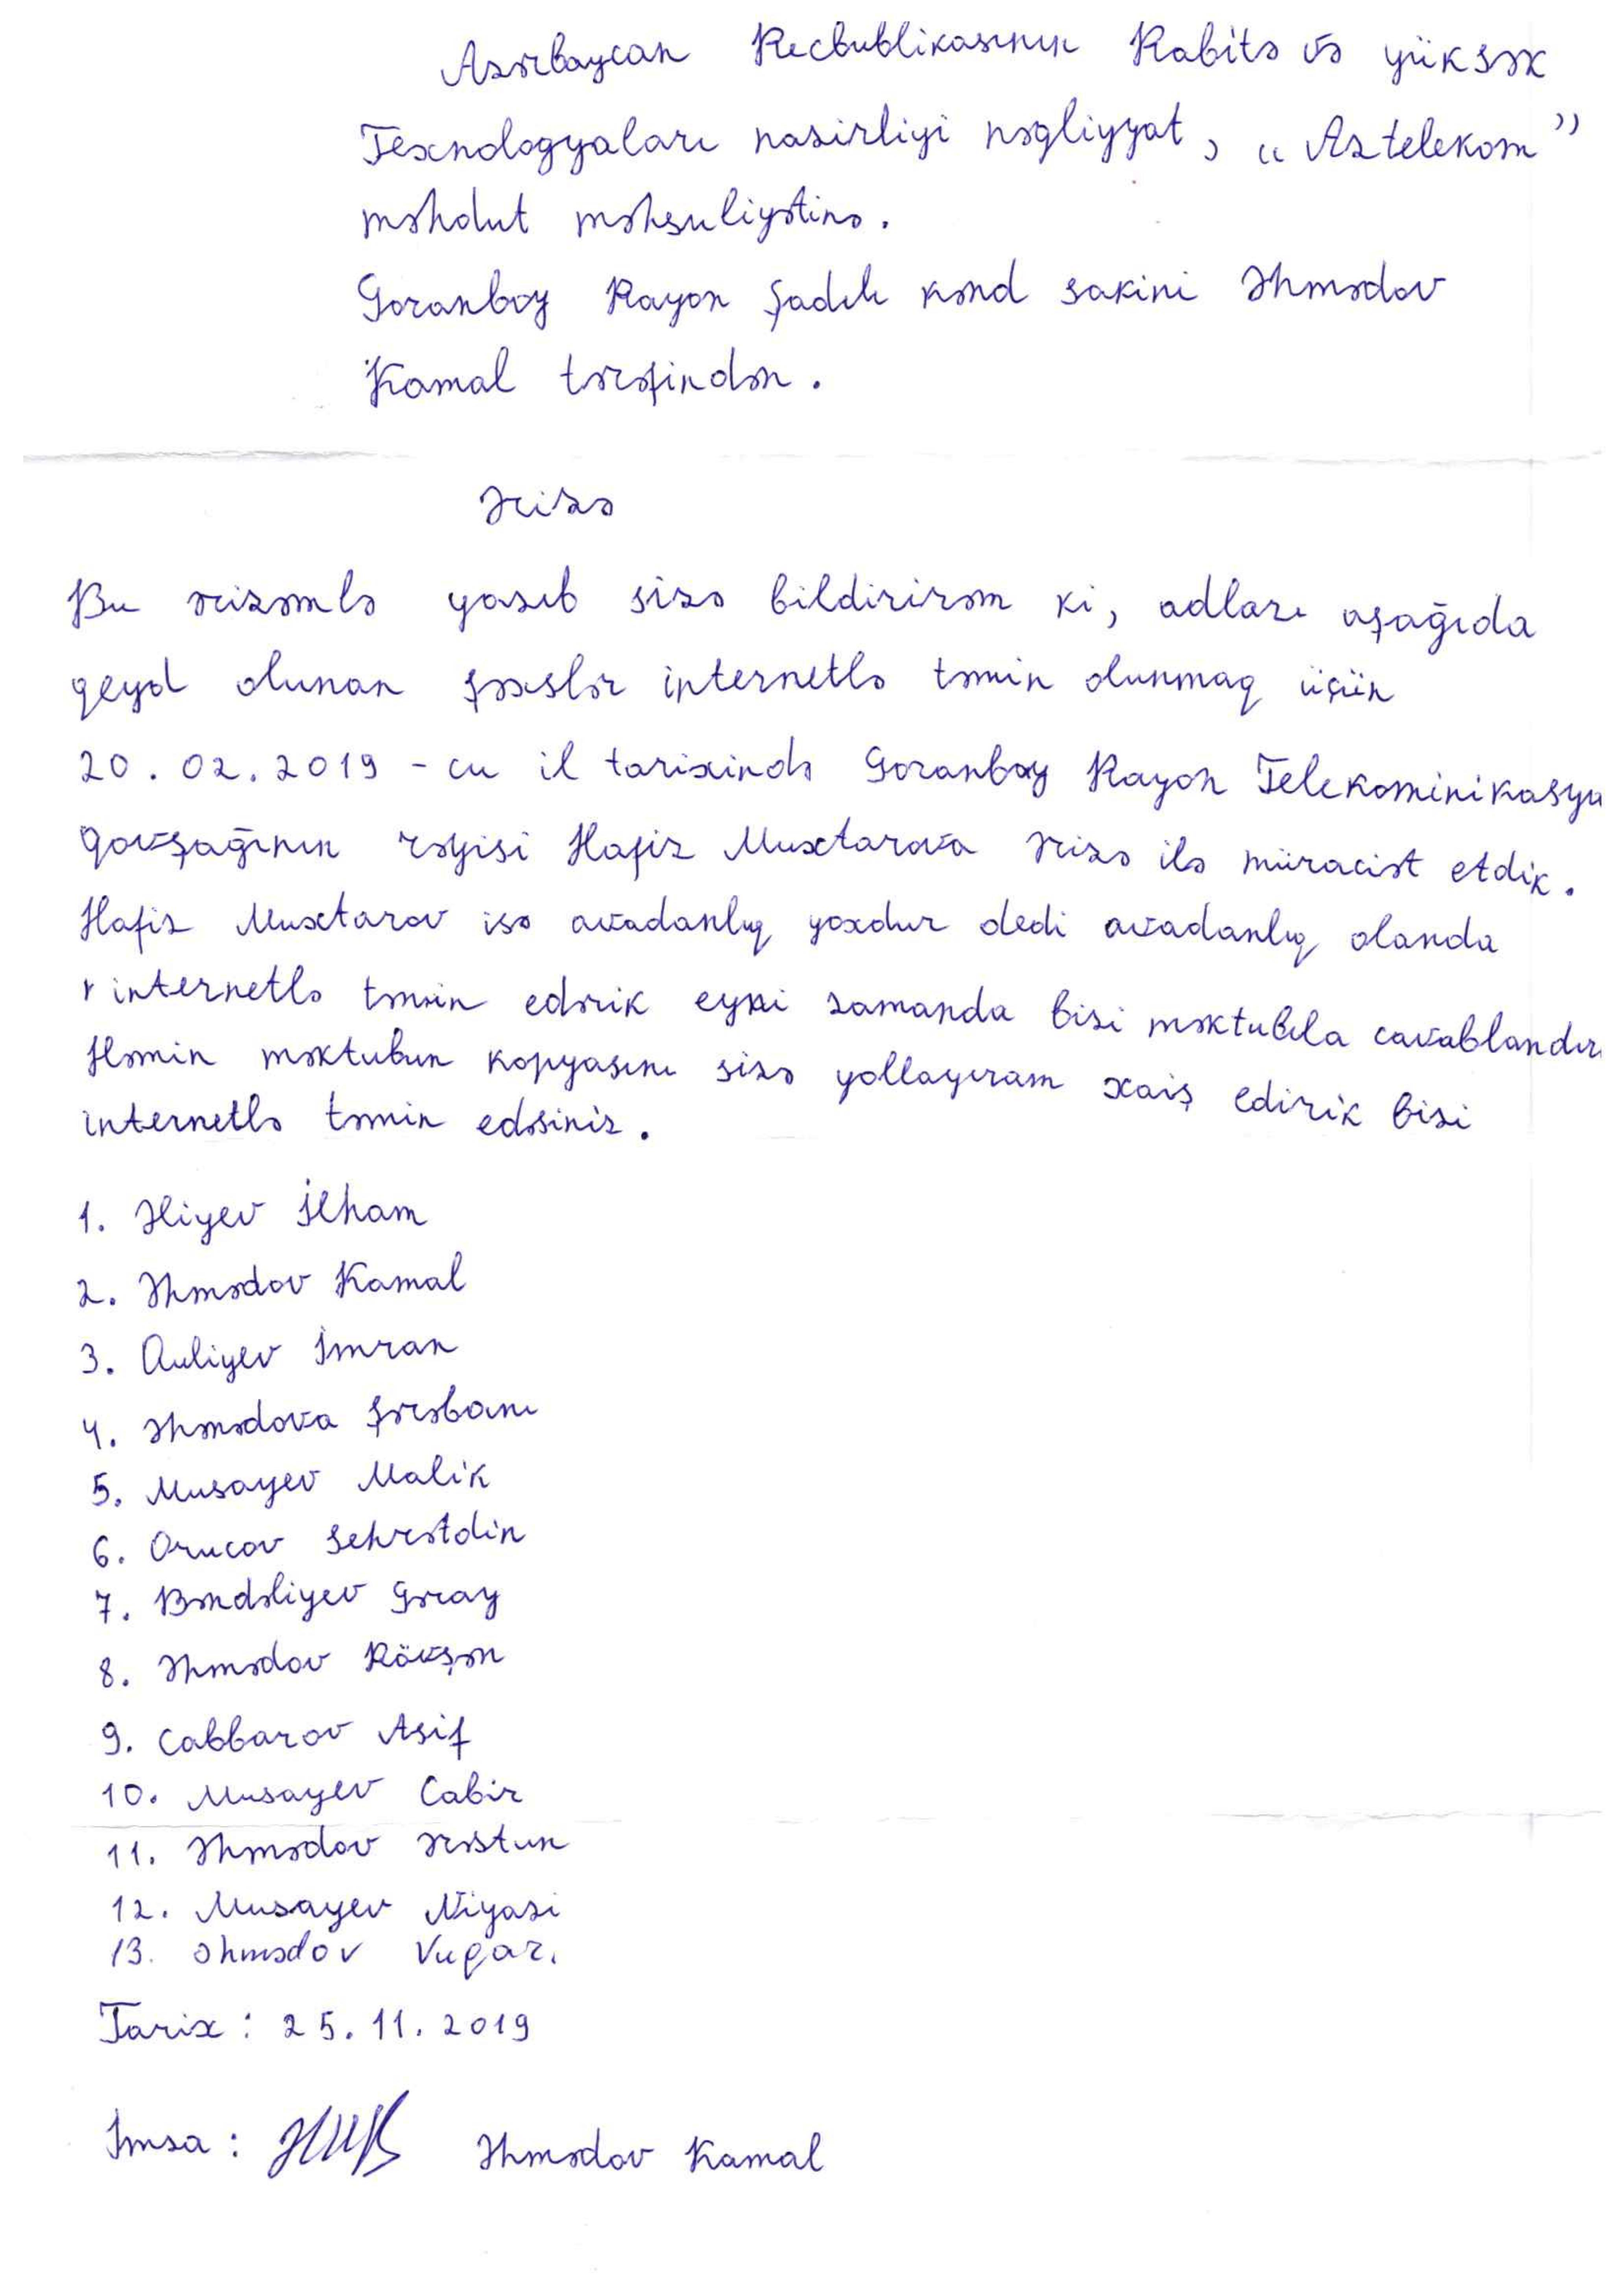 Azərbaycan Recbublikasının Rabitə və yüksək
Texnologyaları nazirliyi nəqliyyat, "Aztelekom"
məhdut məhsuliyətinə.
Goranboy Rayon Şadılı kənd sakini Əhmədov
Kamal tərəfindən.
Ərizə
Bu ərizəmlə yazıb sizə bildirirəm ki, adları aşağıda
qeyd olunan şəxslər internetlə təmin olunmaq üçün
20.02.2019-cu il tarixində Goranboy Rayon Telekominikasya
Qovşağının rəyisi Hafiz Muxtarova ərizə ilə müraciət etdik.
Hafiz Muxtarov isə avadanlıq yoxdur dedi avadanlıq olanda
internetlə təmin edərik eyni zamanda bizi məktubıla cavablandır
Həmin məktubun kopyasını sizə yollayıram xaiş edirik bizi
internetlə təmin edəsiniz.
1. Əliyev İlham
2. Əhmədov Kamal
3. Quliyev İmran
4. Əhmədova Şərəbanı
5. Musayev Malik
6. Orucov Sehrətdin
7. Bəndəliyev Gəray
8. Əhmədov Rövşən
9. Cabbarov Asif
10. Musayev Cabir
11. Əhmədov Ərəstun
12. Musayev Niyazi
13. Əhmədov Vuqar.
Tarix: 25.11.2019
İmza: Əhmədov Kamal